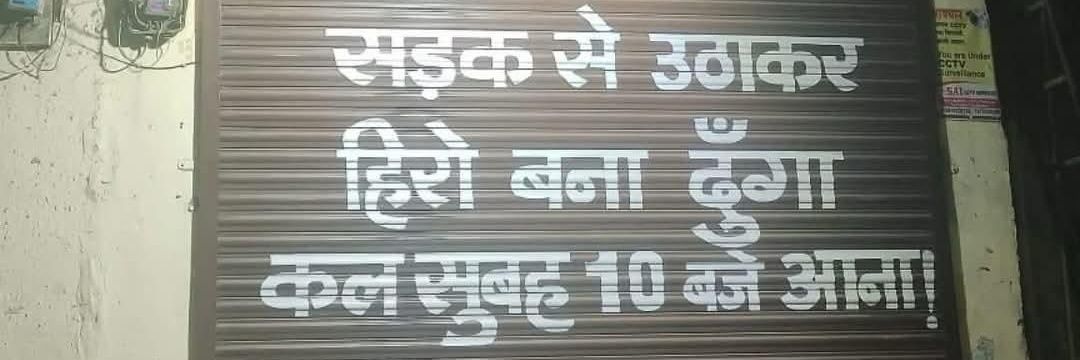 सड़क से उठाकर
हिरो बना दुँगा
कल सुबह 10 बजे आना!
You are Under
CCTV
Surveillance